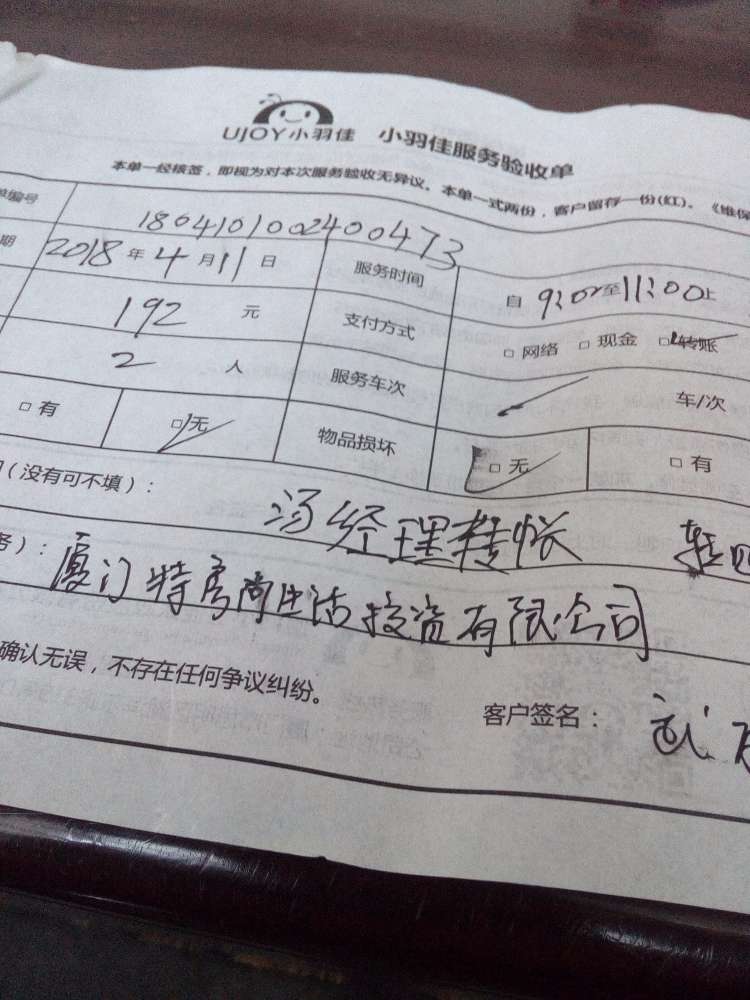 UJOY小羽佳 小羽佳服务验收单
本单一经核签，即视为对本次服务验收无异议。本单一式两份，客户留存一份(红)。《维保
编号 1804101002400473
期 2018 年 4 月 11 日 服务时间 自 9:00 至 11:00 止
192 元 支付方式 □ 网络 □ 现金 □ 转账
2 人 服务车次 车/次
□ 有 □ 无 物品损坏 □ 无 □ 有
(没有可不填)： 汤经理转帐 转
务)： 厦门特房尚生活投资有限公司
确认无误，不存在任何争议纠纷。
客户签名：